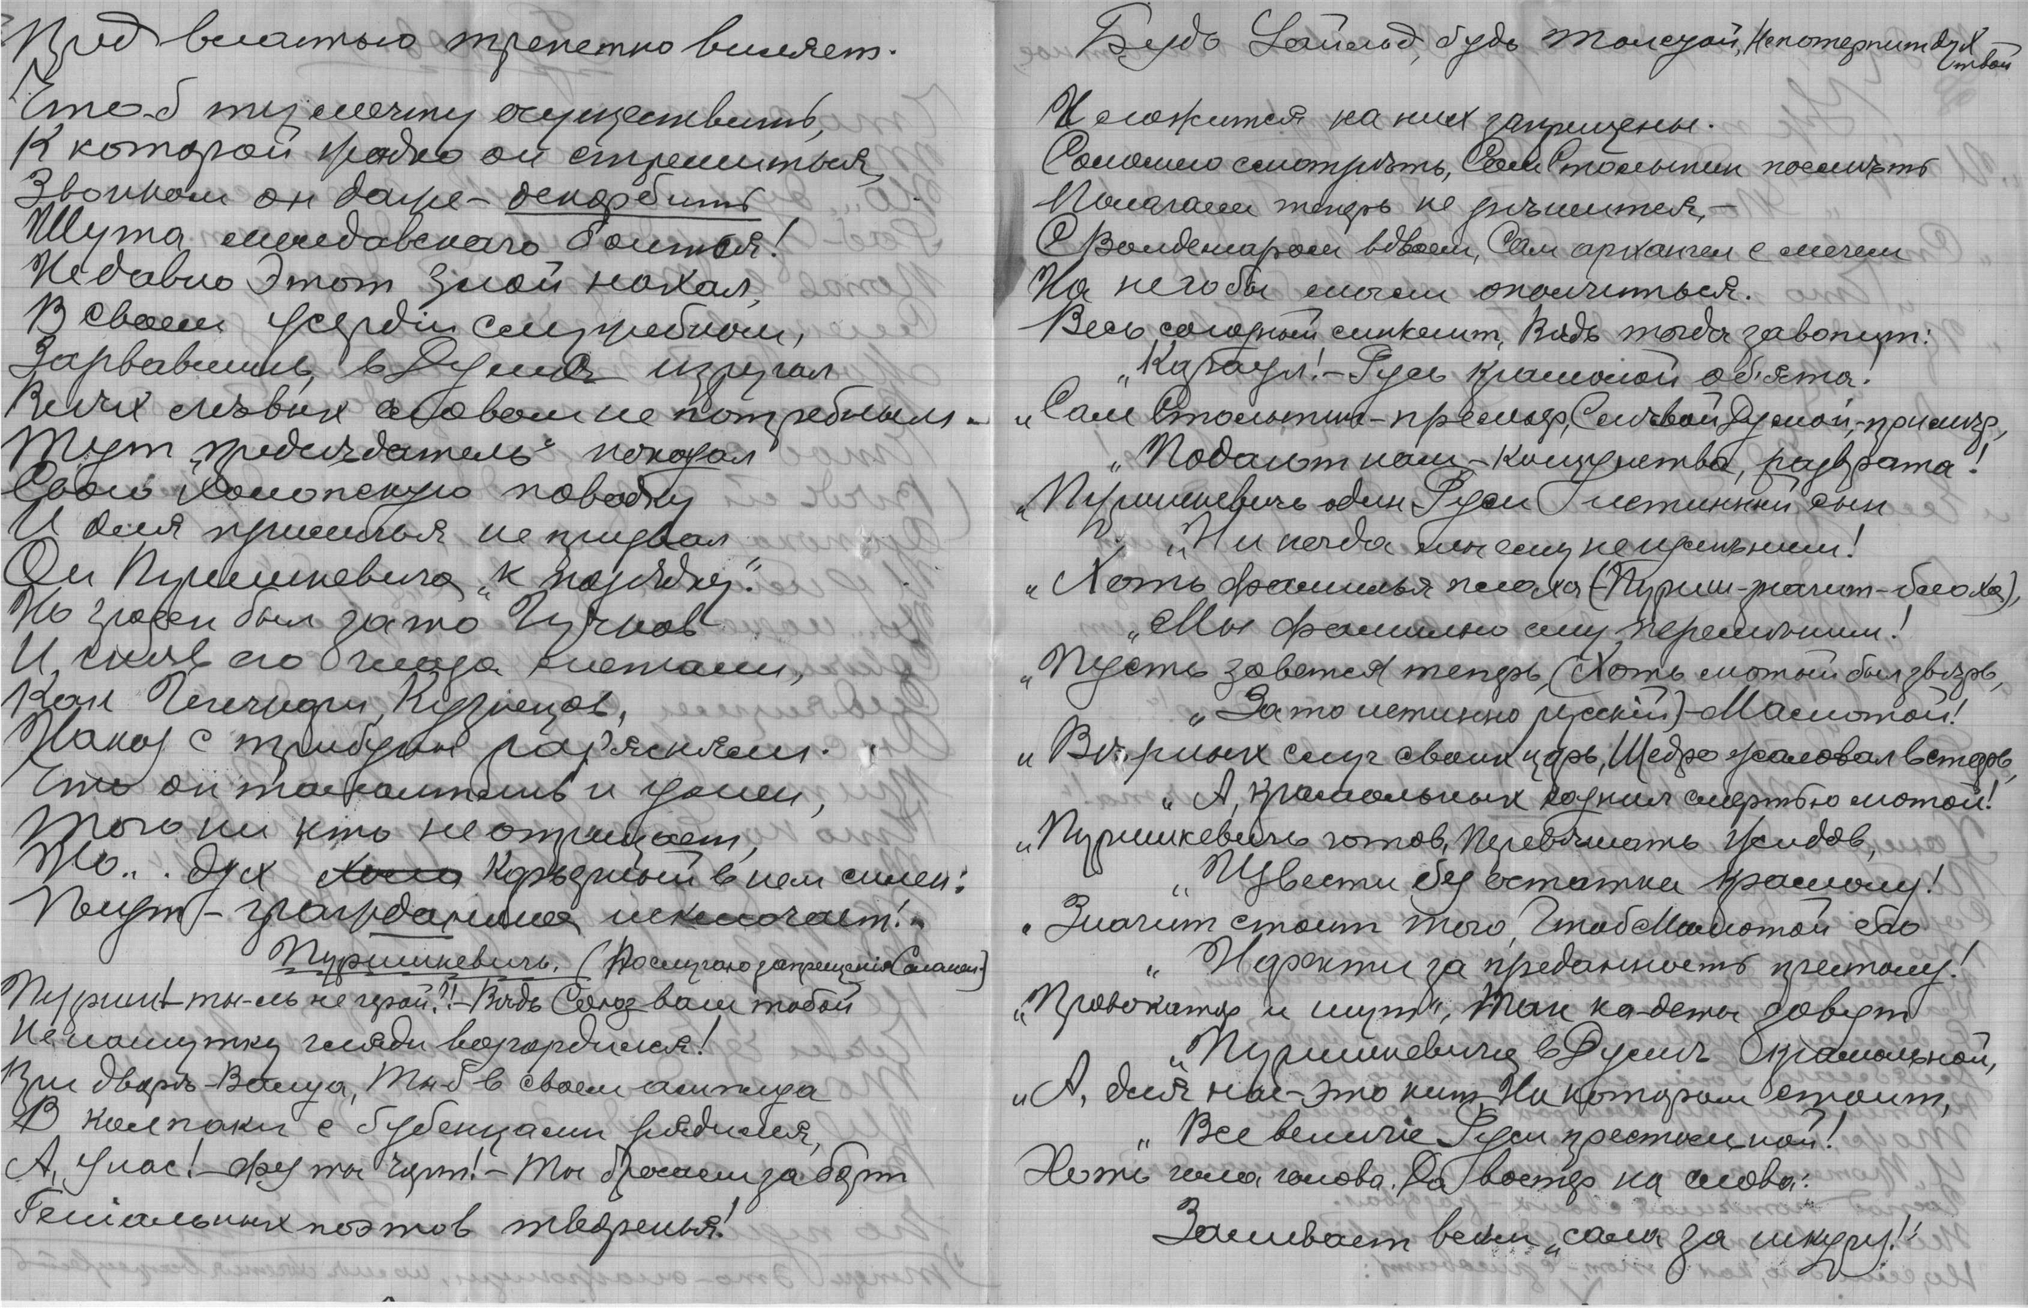 Пред властью трепетно виляет.
Что-б ту мечту осуществить,
К которой жадно он стремиться,
Звонком он даже – оскорбить
Шута молдавскаго боится!
Недавно этот злой нахал,
В своем усердіи служебном,
Зарвавшись, в Думѣ изругал
Всѣх лѣвых словом непотребным. –
Тут „предсѣдатель“ показал
Свою холопскую повадку
И для приличья не призвал
Он Пуришкевича „к порядку“.
Но грозен был зато Гучков
И, сняв его глаза
Как Гегечкори, Кузнецов,
Наказ с трибуны раз'яснял.
Что он талантлив и умен,
Того ни кто не отрицает,
Но... дух карьерный в нем силен:
Плут – гражданина исключает! –
Пуришкевичь. (По случаю запрещенія Саломеи)
Пуриш! – ты-ль не герой?! – Вѣдь Союз вам тобой
Не на шутку гляди возгордился!
При дворѣ Валуа, Ты-б в своем амплуа
В колпаки с бубенцами рядился,
А, у нас! – фу ты чорт! – Ты бросаешь за борт
Геніальных поэтов творенья!
Будь Уайльд, будь Толстой, Не потерпит дух твой
И ложится на них запрещенье.
Саломею смотрѣть, Сам Столыпин посмѣть
Полагаем теперь не рѣшится, –
С Вольдемаром вдвоем, Сам архангел с мечем
На него бы мог ополчиться.
Весь соборный синклит, Вѣдь тогда завопит:
„Караул! – Русь крамолой об'ята!
„Сам Столыпин – премьер, С лѣвой Думой, – примѣр,
„Подают нам – кощунства, разврата!
„Пуришкевичь один Руси истинный сын
„Ни когда мы ему не измѣним!
„Хоть фамилья плоха (– Пуриш – значит – блоха),
„Мы фамилью ему перемѣним!
„Пусть зовется теперь, (Хоть лютой был звѣрь,
„За то истинно русскій) – Малютой!
„Вѣрных слуг своих царь, Щедро жаловал встарь,
„А, крамольных казнил смертью лютой!
„Пуришкевичь готов, Перевѣшать жидов,
„Извести без остатка крамолу!
„Значит стоит того, Чтоб Малютой его
„Наректи за преданность престолу!
„Провокатор и шут“, Так ка-деты зовут
„Пуришкевича в Думѣ крамольной,
„А, для нас – это кит На котором стоит,
„Все величіе Руси престольной!
Хоть гола голова. Да востер на слова:
Заливает всѣм „сала за шкуру!“